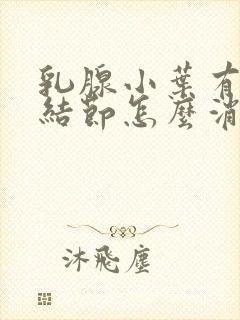 乳腺小葉有
結節怎麼消
沐飛塵